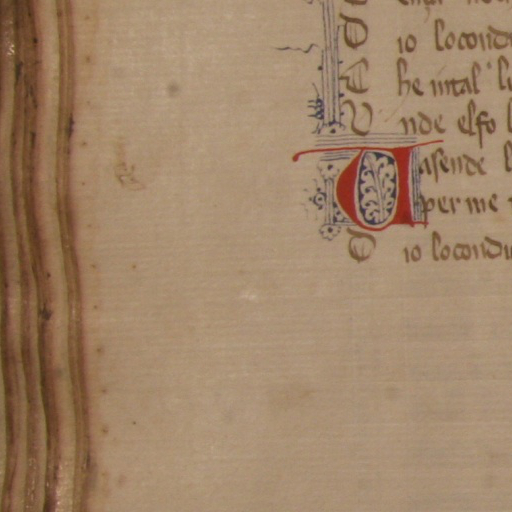 D io locondu
C he intal
V nde elfo l
Uasende l
per me
D io locondu